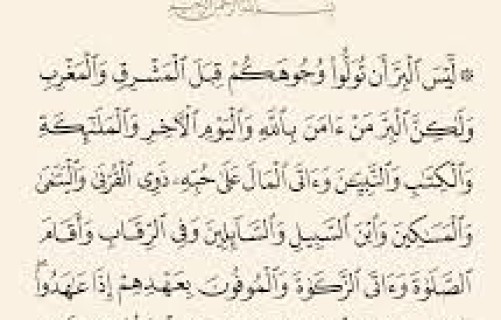 بسم الله الرحمن الرحيم
۞ لَّيْسَ ٱلْبِرَّ أَن تُوَلُّوا۟ وُجُوهَكُمْ قِبَلَ ٱلْمَشْرِقِ وَٱلْمَغْرِبِ
وَلَٰكِنَّ ٱلْبِرَّ مَنْ ءَامَنَ بِٱللَّهِ وَٱلْيَوْمِ ٱلْأَخِرِ وَٱلْمَلَٰٓئِكَةِ
وَٱلْكِتَٰبِ وَٱلنَّبِيِّـۧنَ وَءَاتَى ٱلْمَالَ عَلَىٰ حُبِّهِۦ ذَوِى ٱلْقُرْبَىٰ وَٱلْيَتَٰمَىٰ
وَٱلْمَسَٰكِينَ وَٱبْنَ ٱلسَّبِيلِ وَٱلسَّآئِلِينَ وَفِى ٱلرِّقَابِ وَأَقَامَ
ٱلصَّلَوٰةَ وَءَاتَى ٱلزَّكَوٰةَ وَٱلْمُوفُونَ بِعَهْدِهِمْ إِذَا عَٰهَدُوا۟ۖ